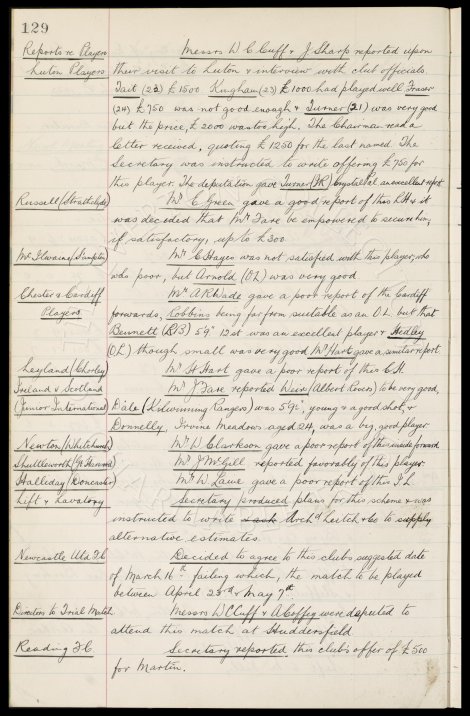 129
Reports re Players Messrs W C Cuff & J Sharp reported upon
Luton Players their visit to Luton & interview with club officials.
Tait (22) £1500 Kingham (23) £1000 had played well Fraser
(24) £750 was not good enough & Turner (21) was very good
but the price, £2000 was too high. The Chairman read a
letter received, quoting £1250 for the last named. The
Secretary was instructed to write offering £750 for
this player. The deputation gave Turner (IR) Crystal Pal. an excellent report
Russell (Strathclyde) Mr C Green gave a good report of this RH & it
was decided that Mr Fare be empowered to secure him,
if satisfactory, up to £300.
Mc Ilwaine (S'hampton) Mr C Hayes was not satisfied with this player, who
was poor, but Arnold (OL) was very good
Chester & Cardiff Mr A R Wade gave a poor report of the Cardiff
Players. forwards, Robbins being far from suitable as an OL. but that
Bennett (RB) 5'9" 12st was an excellent player & Hedley
(OL) though small was very good Mr Hart gave a similar report
Leyland (Chorley) Mr H Hart gave a poor report of this CH.
Ireland v Scotland Mr J Fare reported Weir (Albert Rovers) to be very good,
(Junior International) Dale (Kilwinning Rangers) was 5'9½", young & a good shot, &
Donnelly, Irvine Meadows aged 24, was a big, good player.
Newton (Whitchurch) Mr W Clarkson gave a poor report of this inside forward
Shuttleworth ( Mr J McGill reported favorably of this player
Halliday (Doncaster) Mr W Lowe gave a poor report of this I.L.
Lift & Lavatory Secretary produced plans for this scheme & was
instructed to write Archd Leitch & Co to supply
alternative estimates.
Newcastle Utd F.C. Decided to agree to this clubs, suggested date
of March 16th failing which, the match to be played
between April 23rd & May 7th.
Directors to Trial Match Messrs W C Cuff & A Coffey were deputed to
attend this match at Huddersfield
Reading F.C. Secretary reported this club's offer of £500
for Martin.